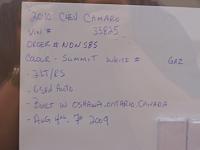 2010 CHEV CAMARO
VIN # 33825
ORDER # NDWSBS
COLOUR - SUMMIT WHITE # GAZ
- 2LT/RS
- 6SPD AUTO
- BUILT IN OSHAWA, ONTARIO, CANADA
- AUG 4TH, 7P 2009